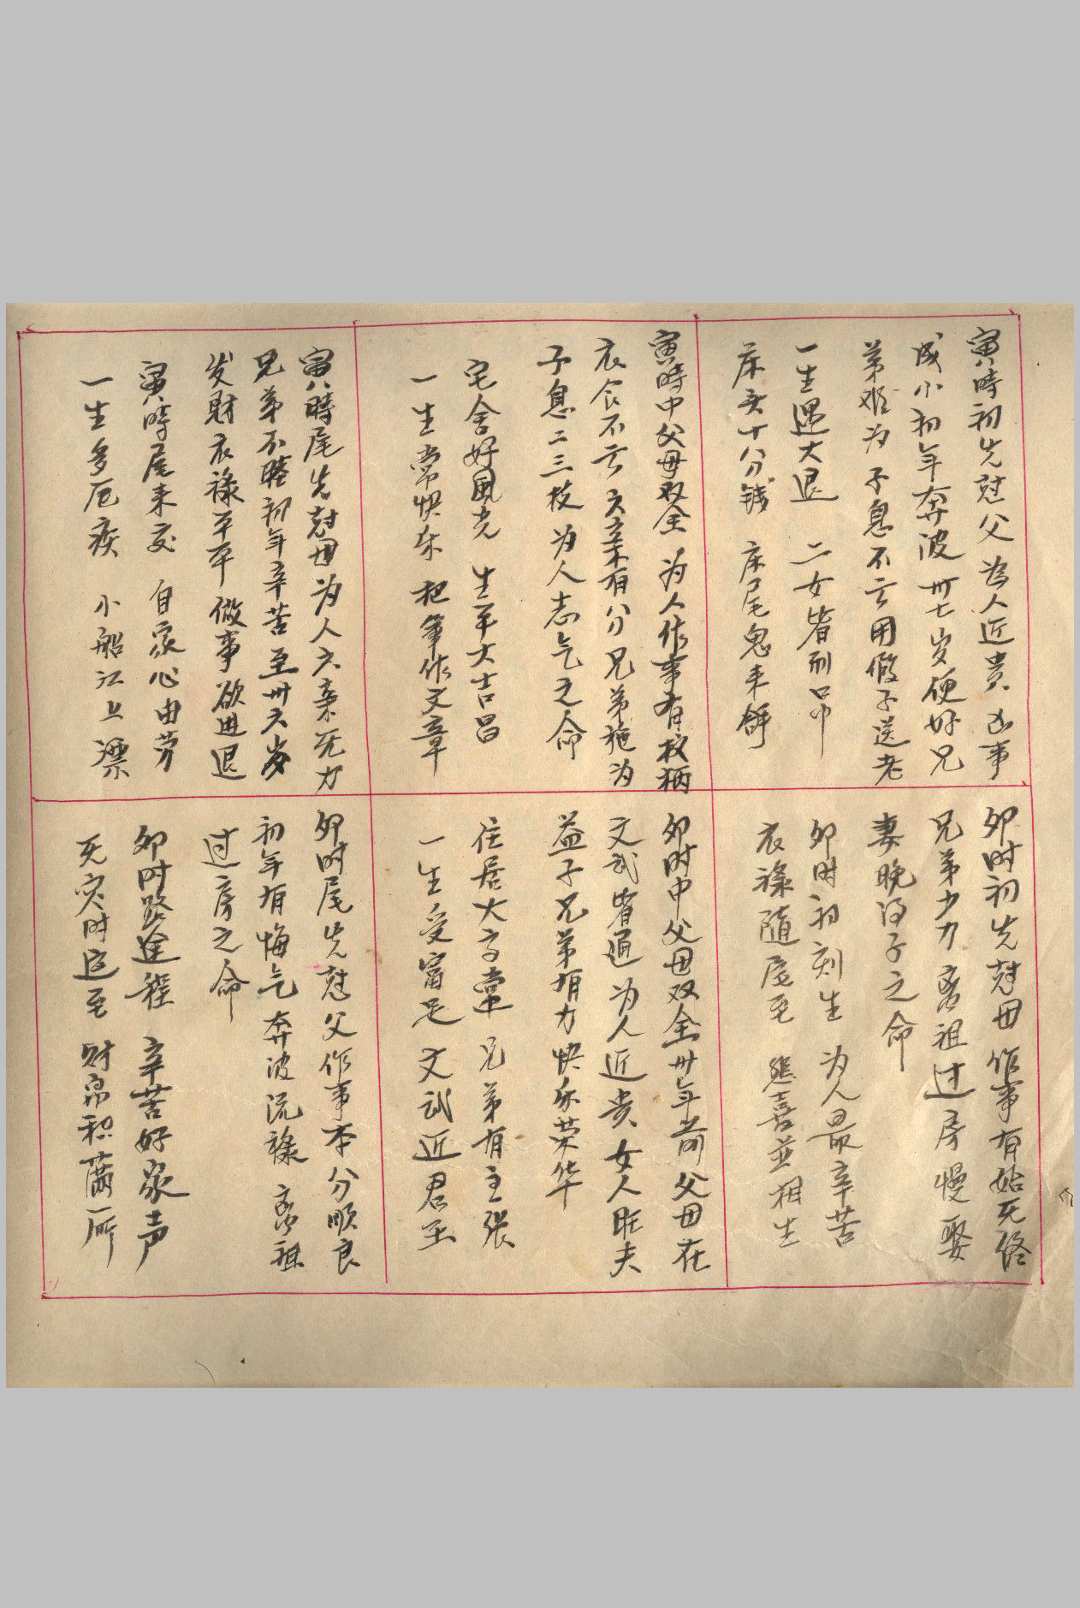 寅時初先尅父 為人近貴 凶事
成小初年奔波 卅七岁便好兄
弟难为 子息不亏用假子送老
一生遇大退 二女皆刑吊
床头十分钱 床尾鬼来
寅時中父母双全 为人作事有权柄
衣食不亏 六亲有分 兄弟施为
子息二三枝 为人志气之命
宅舍好風光 生平大吉昌
一生常快乐 把筆作文章
寅時尾先尅母 为人六亲无力
兄弟不睦初年辛苦至卅六岁
发财衣祿平平 做事欲进退
寅時尾末交 自家心由劳
一生多厄疾 小船江上漂
卯时初先尅母 作事有始无终
兄弟少力 离祖过房慢娶
妻晚得子之命
卯时初刻生 为人最辛苦
衣祿随后至 悲喜並相生
卯时中父母双全卅年前父母在
文武皆通 为人近贵 女人旺夫
益子兄弟有力快乐荣华
住居大高堂 兄弟有主张
一生受富足 文武近君王
卯时尾先尅父 作事本分順良
初年有悔气 奔波流祿 离祖
过房之命
卯时路途程 辛苦好家声
无灾时运至 财帛积滿